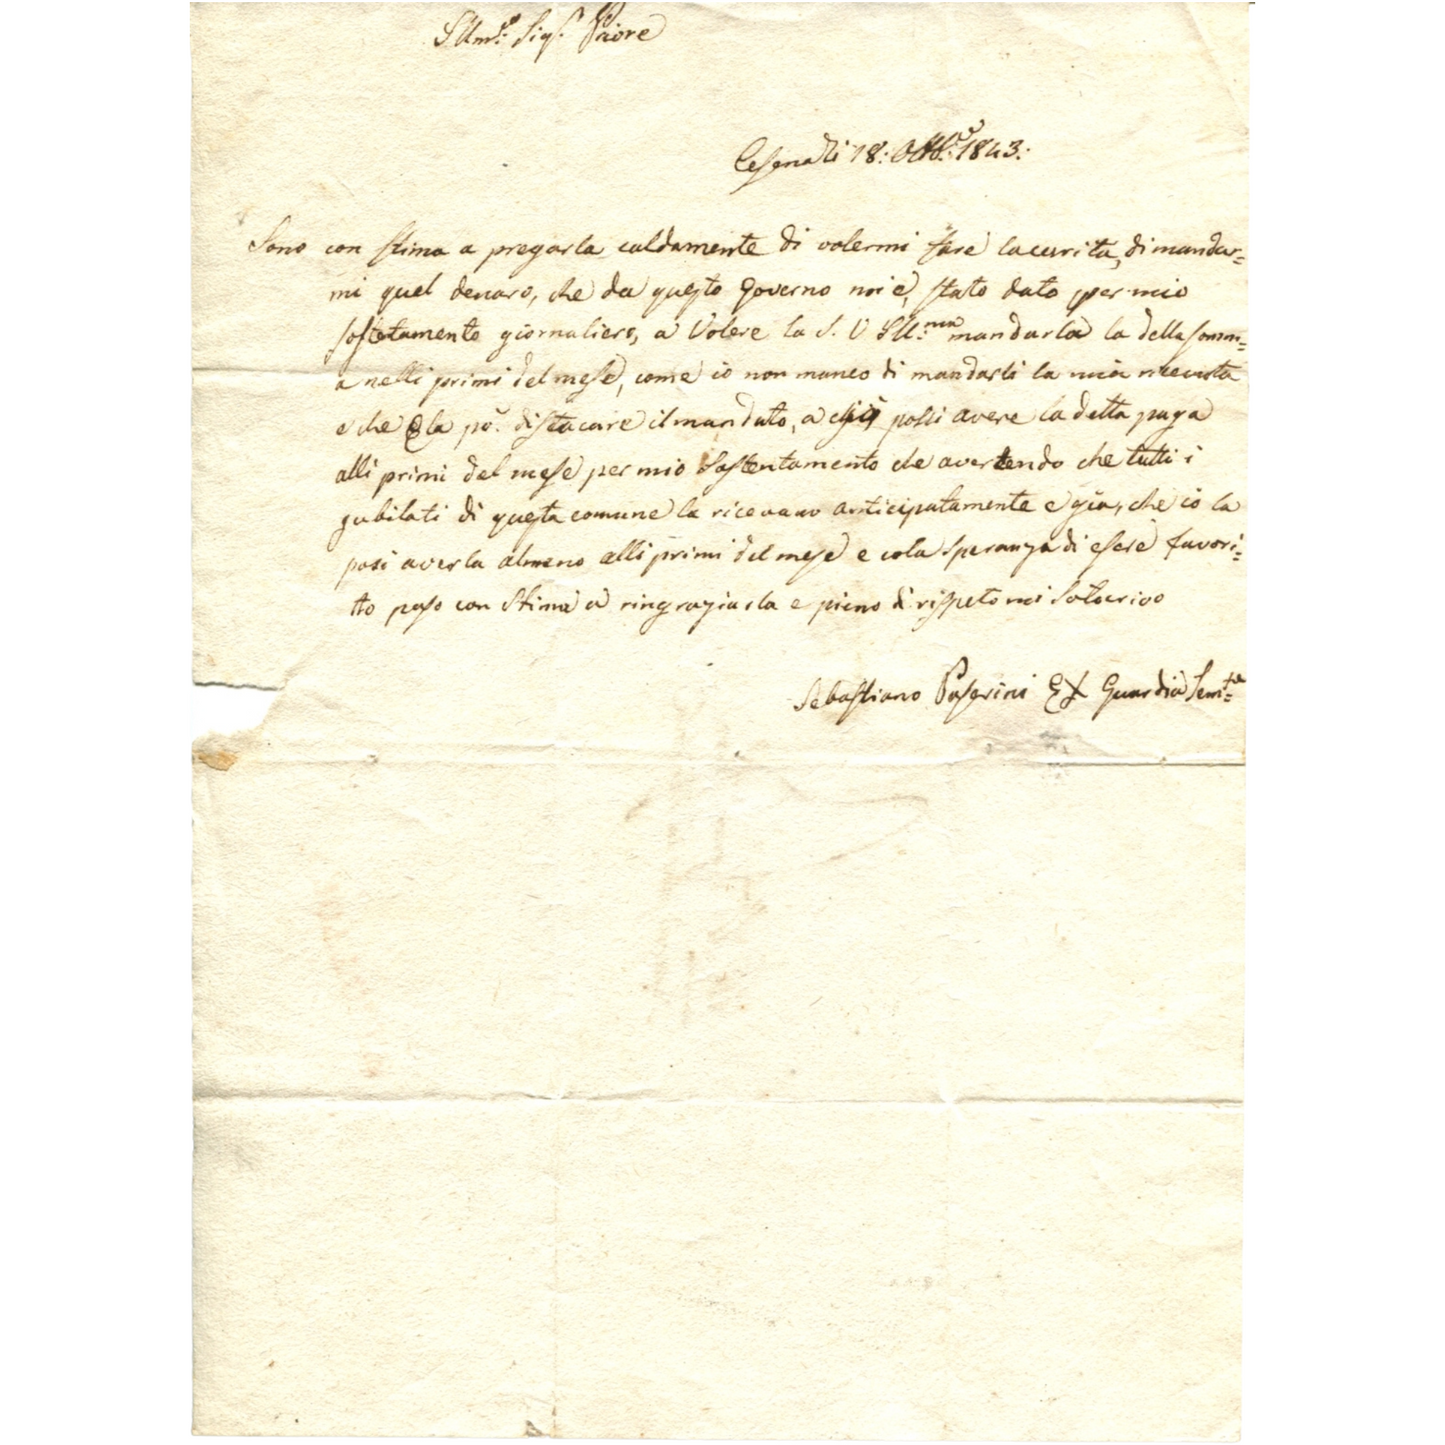 Illmo: Sigr. Priore
Cesena li 18: Ottbre: 1843:
Sono con stima a pregarla caldamente di volermi fare la carità, di mandar=
mi quel denaro, che da questo Governo mi è, stato dato per mio
sostetamento giornaliero, a Volere la S. V Ill:ma mandarla la della somm=
a nelli primi del mese, come io non manco di mandarli la mia riceuta
e che la pò. distacare il mandato, a possi avere la detta paga
alli primi del mese per mio Sostentamento che avertendo che tutti i
gubilati di questa comune la ricevano anticipatamente e già, che io la
posi averla almeno alli primi del mese e cola Speranza di esere favori=
to paso con Stima a ringraziarla e pieno di rispeto mi Sotocrivo
Sebastiano Paserini EX Guardia